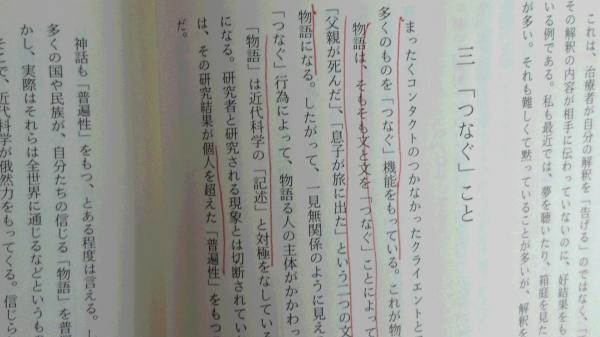 これは、治療者が自分の解釈を「告げる」のではなく、「
その解釈の内容が相手に伝わっていないのに、好結果をも
いる例である。私も最近では、夢を聴いたり、箱庭を見た
が多い。それも難しくて黙っていることが多いが、解釈を
三 「つなぐ」こと
まったくコンタクトのつかなかったクライエントと
多くのものを「つなぐ」機能をもっている。これが物
物語は、そもそも文と文を「つなぐ」ことによって
「父親が死んだ」、「息子が旅に出た」という二つの文
物語になる。したがって、一見無関係のように見え
「つなぐ」行為によって、物語る人の主体がかかわっ
「物語」は近代科学の「記述」と対極をなしている
になる。研究者と研究される現象とは切断されてい
は、その研究結果が個人を超えた「普遍性」をもつ
だ。
神話も「普遍性」をもつ、とある程度は言える。
多くの国や民族が、自分たちの信じる「物語」を普
かし、実際はそれらは全世界に通じるなどというもの
そこで、近代科学が俄然力をもってくる。信じら